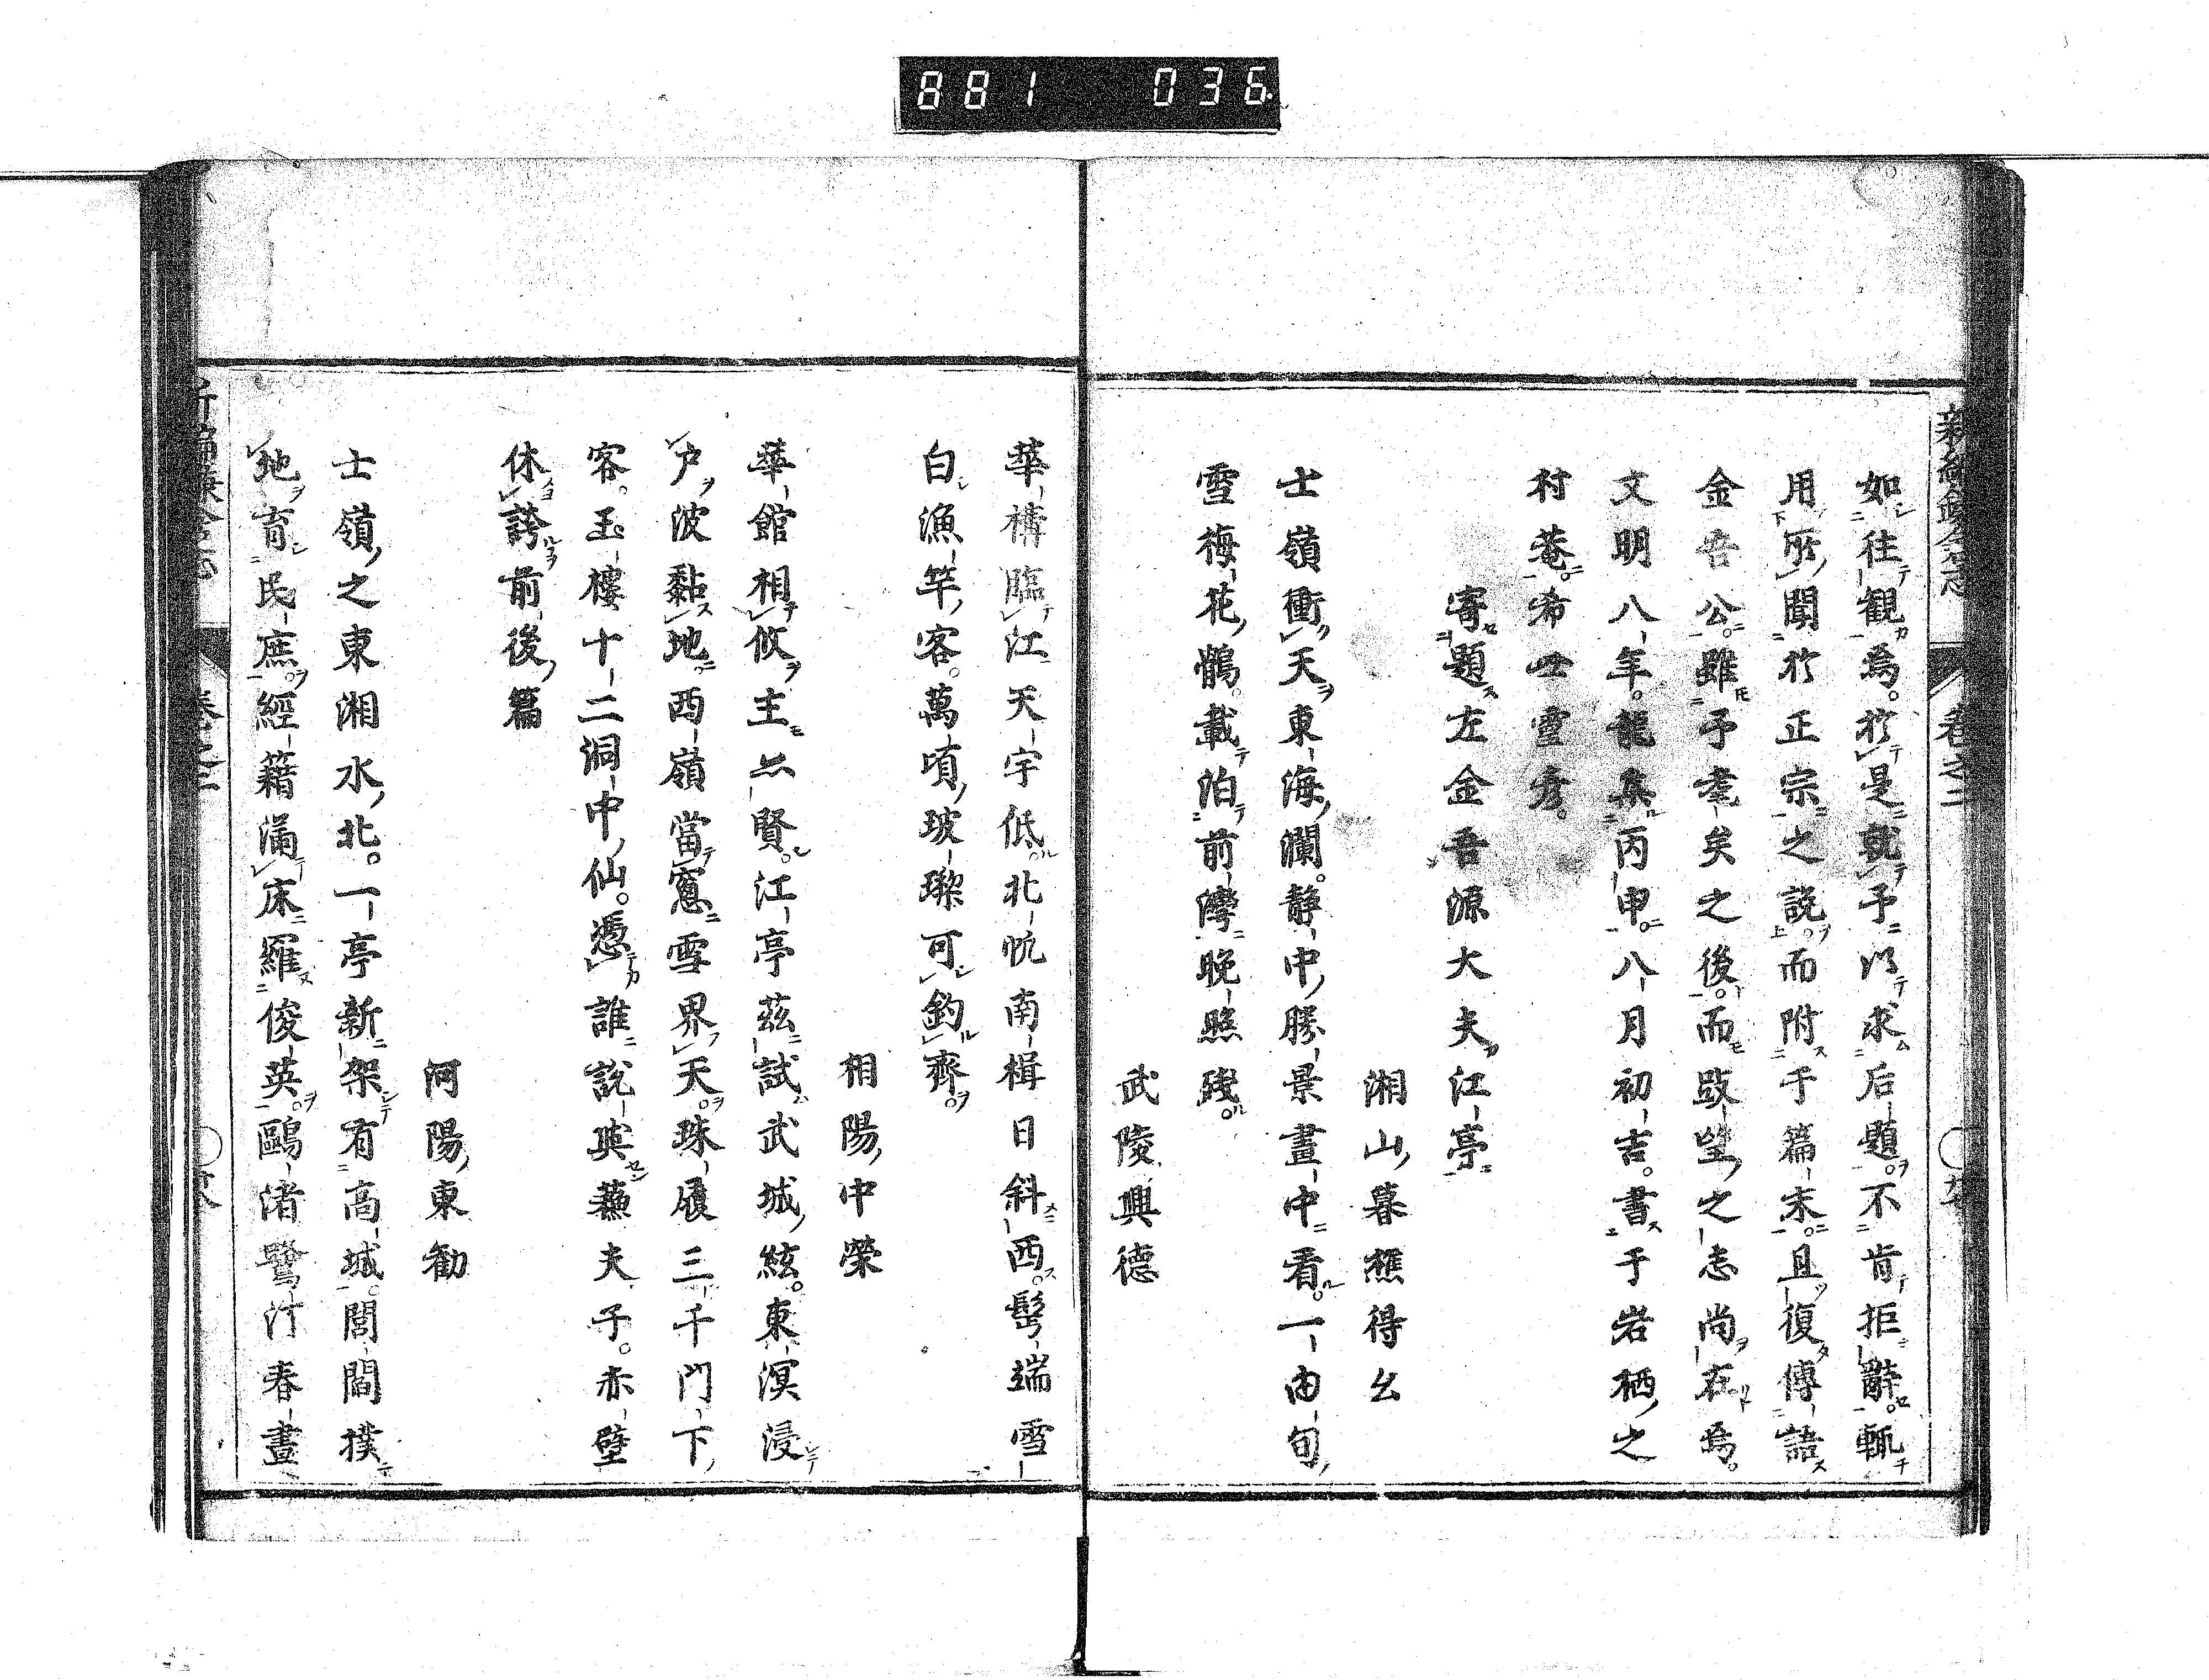 881 036
新編鎌倉志 卷之二
如往観焉。於是就予以求后題。不肯拒辭。輒
用所聞於正宗之説。而附于篇末。且復傳語
金吾公。雖予耄矣之後。而跂望之志尚在焉。
文明八年。龍集丙申。八月初吉。書于岩栖之
村菴。希世霊彦。
寄題左金吾源大夫江亭
湘山暮樵得么
士嶺衝天東海瀾。靜中勝景畫中看。一由旬
雪梅花鶺。載泊前灣晚照殘。
武陵興德
華構臨江天宇低。北忼南楫日斜西。髻端雪
白漁竿客。萬頃玻瓈可釣齊。
相陽中榮
華館相攸主亦賢。江亭茲試武城絃。東溟浸
戶波黏地。西嶺當窻雪界天。珠履三千門下
客。玉樓十二洞中仙。憑誰說與蘓夫子。赤壁
休誇前後篇
河陽東勸
士嶺之東湘水北。一亭新架有高城。閭閻撲
地育民庶。經籍滿床羅俊英。鷗渚鷺汀春畫